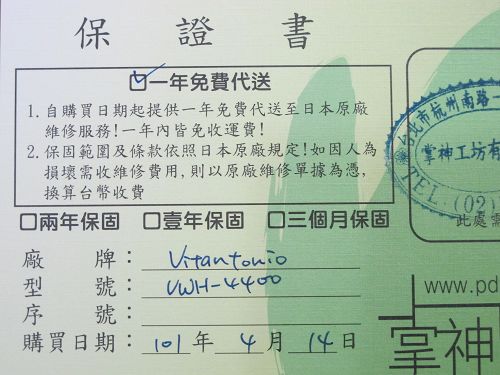 保證書
☑一年免費代送
1. 自購買日期起提供一年免費代送至日本原廠
維修服務!一年內皆免收運費!
2. 保固範圍及條款依照日本原廠規定!如因人為
損壞需收維修費用,則以原廠維修單據為憑,
換算台幣收費
□兩年保固 □壹年保固 □三個月保固
廠牌: Vitantonio
型號: VWH-4400
序號:
購買日期: 101 年 4 月 14 日
台北市杭州南路一
掌神工坊有
TEL:(02)
此處需
www.pd
掌神